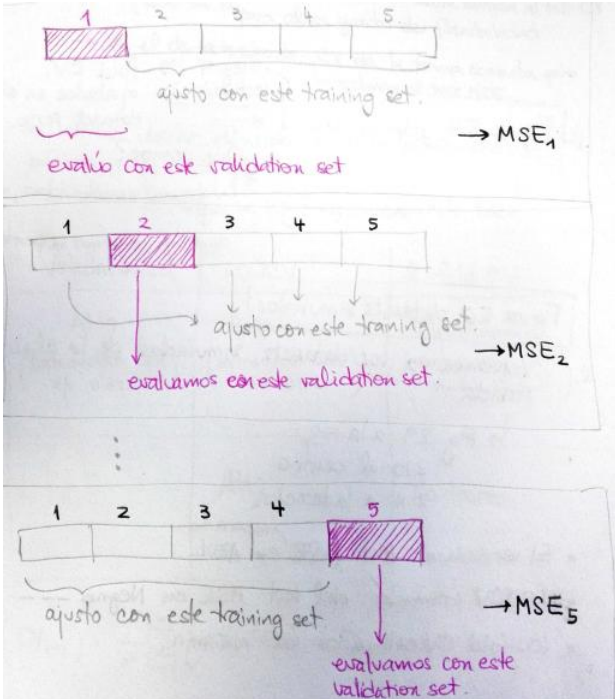 1 2 3 4 5
ajusto con este training set.
→ MSE₁
evalúo con este validation set
1 2 3 4 5
ajusto con este training set.
→ MSE₂
evaluamos con este validation set.
1 2 3 4 5
ajusto con este training set
→ MSE₅
evaluamos con este
validation set.